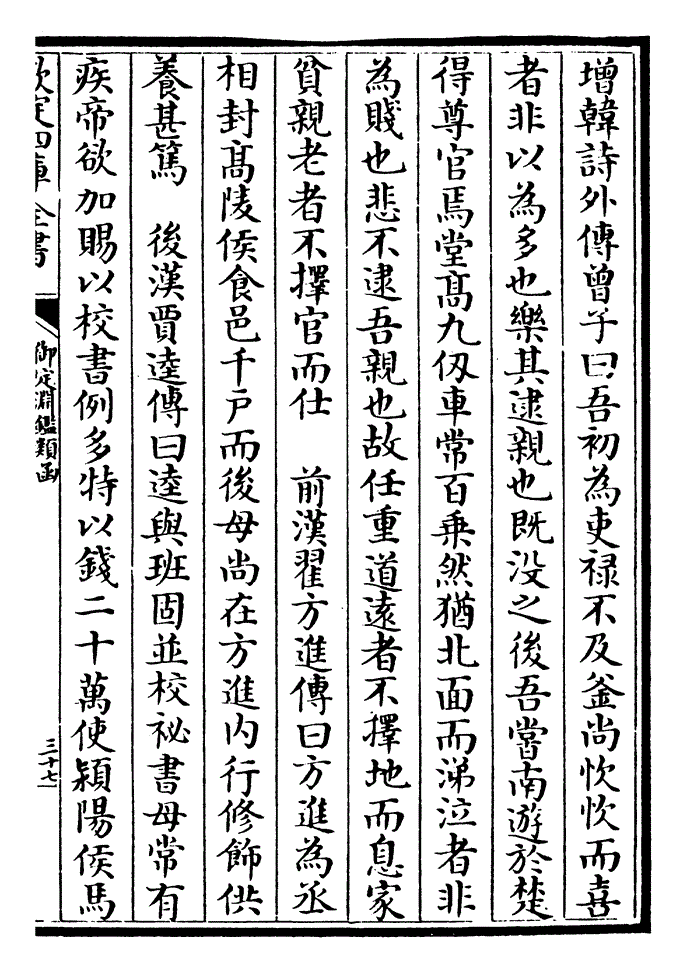 增韓詩外傳曾子曰吾初為吏禄不及釜尚忻忻而喜
者非以為多也樂其逮親也既没之後吾嘗南遊於楚
得尊官焉堂髙九仭車常百乗然猶北面而涕泣者非
為賤也悲不逮吾親也故任重道逺者不擇地而息家
貧親老者不擇官而仕　前漢翟方進傳曰方進為丞
相封髙陵侯食邑千戸而後母尚在方進内行修飾供
養甚篤　後漢賈逵傳曰逵與班固並校祕書母常有
疾帝欲加賜以校書例多特以錢二十萬使潁陽侯馬
欽定四庫全書
御定淵鑑類函
三十七